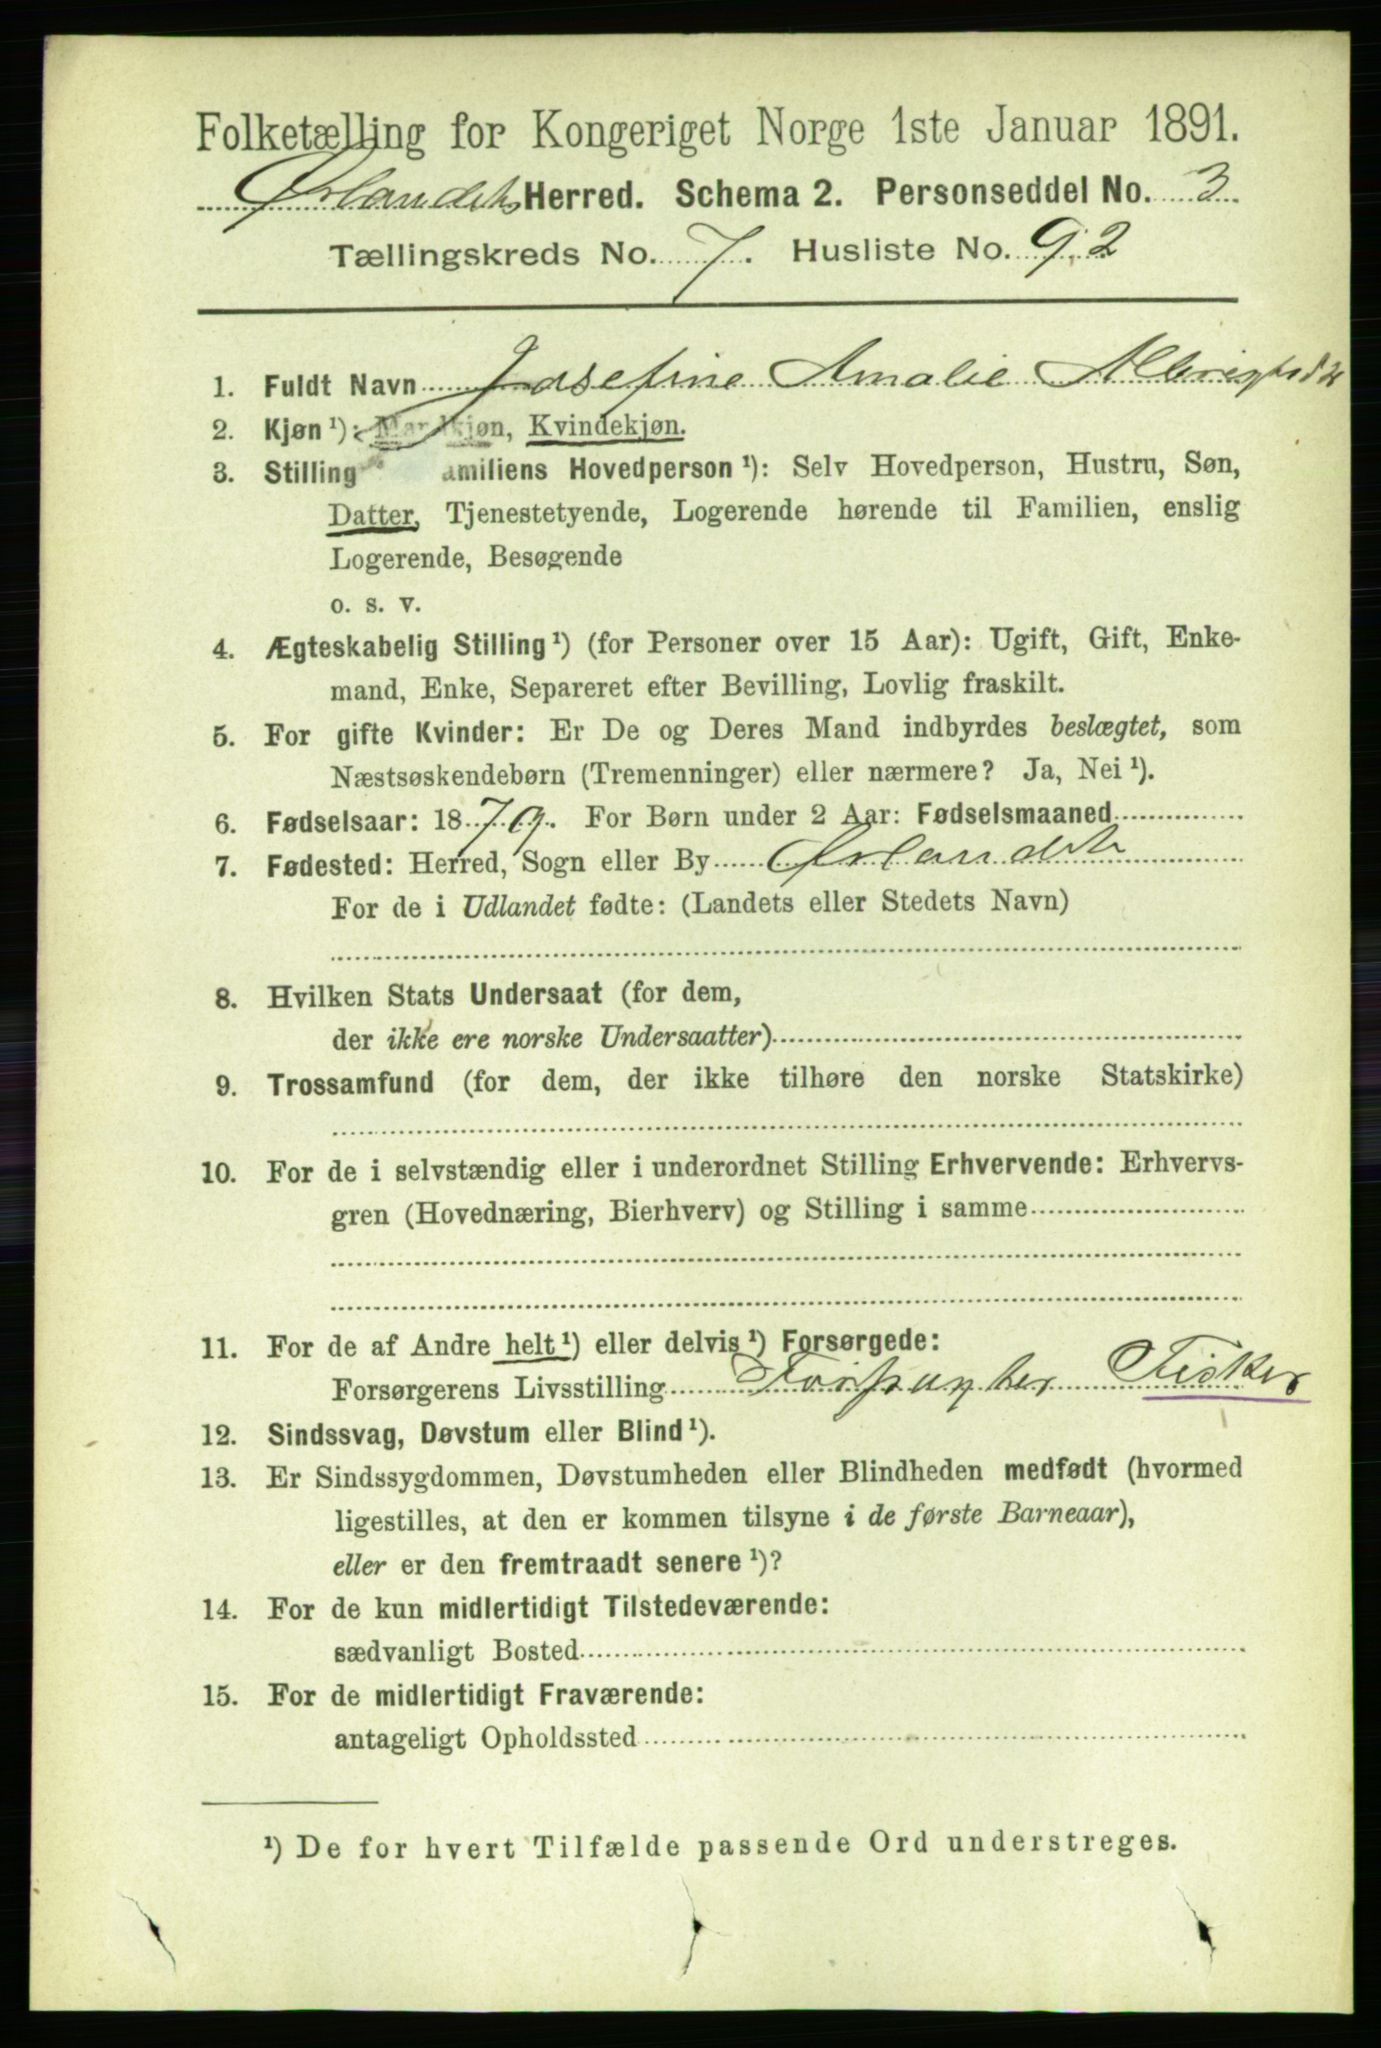 Folketælling for Kongeriget Norge 1ste Januar 1891.
Ørlandets Herred. Schema 2. Personseddel No. 3
Tællingskreds No. 7. Husliste No. 92
1. Fuldt Navn Josefine Amalie
2. Kjøn ¹): Kvindekjøn.
3. Stilling amiliens Hovedperson ¹): Selv Hovedperson, Hustru, Søn,
Datter, Tjenestetyende, Logerende hørende til Familien, enslig
Logerende, Besøgende
o. s. v.
4. Ægteskabelig Stilling ¹) (for Personer over 15 Aar): Ugift, Gift, Enke-
mand, Enke, Separeret efter Bevilling, Lovlig fraskilt.
5. For gifte Kvinder: Er De og Deres Mand indbyrdes beslægtet, som
Næstsøskendebørn (Tremenninger) eller nærmere? Ja, Nei ¹).
6. Fødselsaar: 1879. For Børn under 2 Aar: Fødselsmaaned
7. Fødested: Herred, Sogn eller By Ørlandet
For de i Udlandet fødte: (Landets eller Stedets Navn)
8. Hvilken Stats Undersaat (for dem,
der ikke ere norske Undersaatter)
9. Trossamfund (for dem, der ikke tilhøre den norske Statskirke)
10. For de i selvstændig eller i underordnet Stilling Erhvervende: Erhvervs-
gren (Hovednæring, Bierhverv) og Stilling i samme
11. For de af Andre helt ¹) eller delvis ¹) Forsørgede:
Forsørgerens Livsstilling Fisker
12. Sindssvag, Døvstum eller Blind ¹).
13. Er Sindssygdommen, Døvstumheden eller Blindheden medfødt (hvormed
ligestilles, at den er kommen tilsyne i de første Barneaar),
eller er den fremtraadt senere ¹)?
14. For de kun midlertidigt Tilstedeværende:
sædvanligt Bosted
15. For de midlertidigt Fraværende:
antageligt Opholdssted
¹) De for hvert Tilfælde passende Ord understreges.